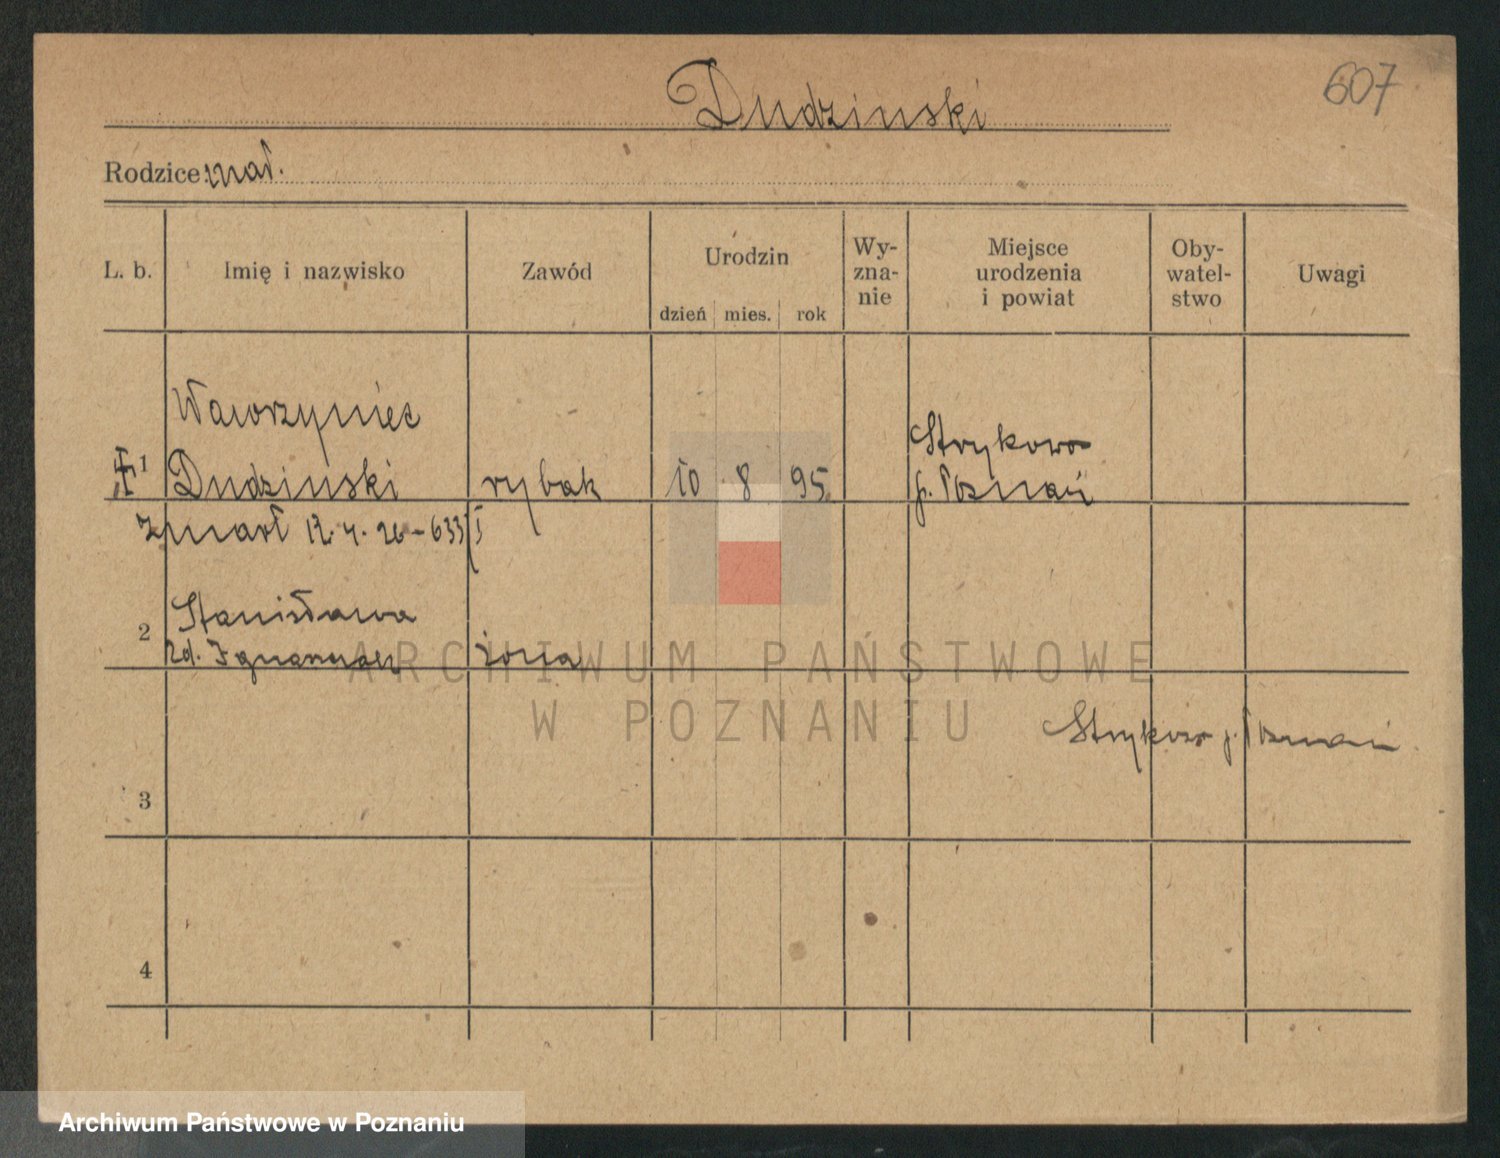 607
Dudzinski
Rodzice: mał.
L. b. Imię i nazwisko Zawód Urodzin dzień mies. rok Wy-zna-nie Miejsce urodzenia i powiat Oby-watel-stwo Uwagi
Wawrzyniec
1 Dudzinski rybak 10 8 95 Strykowo
p. Poznań
zmarł 12.4.26-633/I
Stanisława
2 zd. Ignaszak żona
Strykowo p. Poznań
3
4
ARCHIWUM PAŃSTWOWE
W POZNANIU
Archiwum Państwowe w Poznaniu